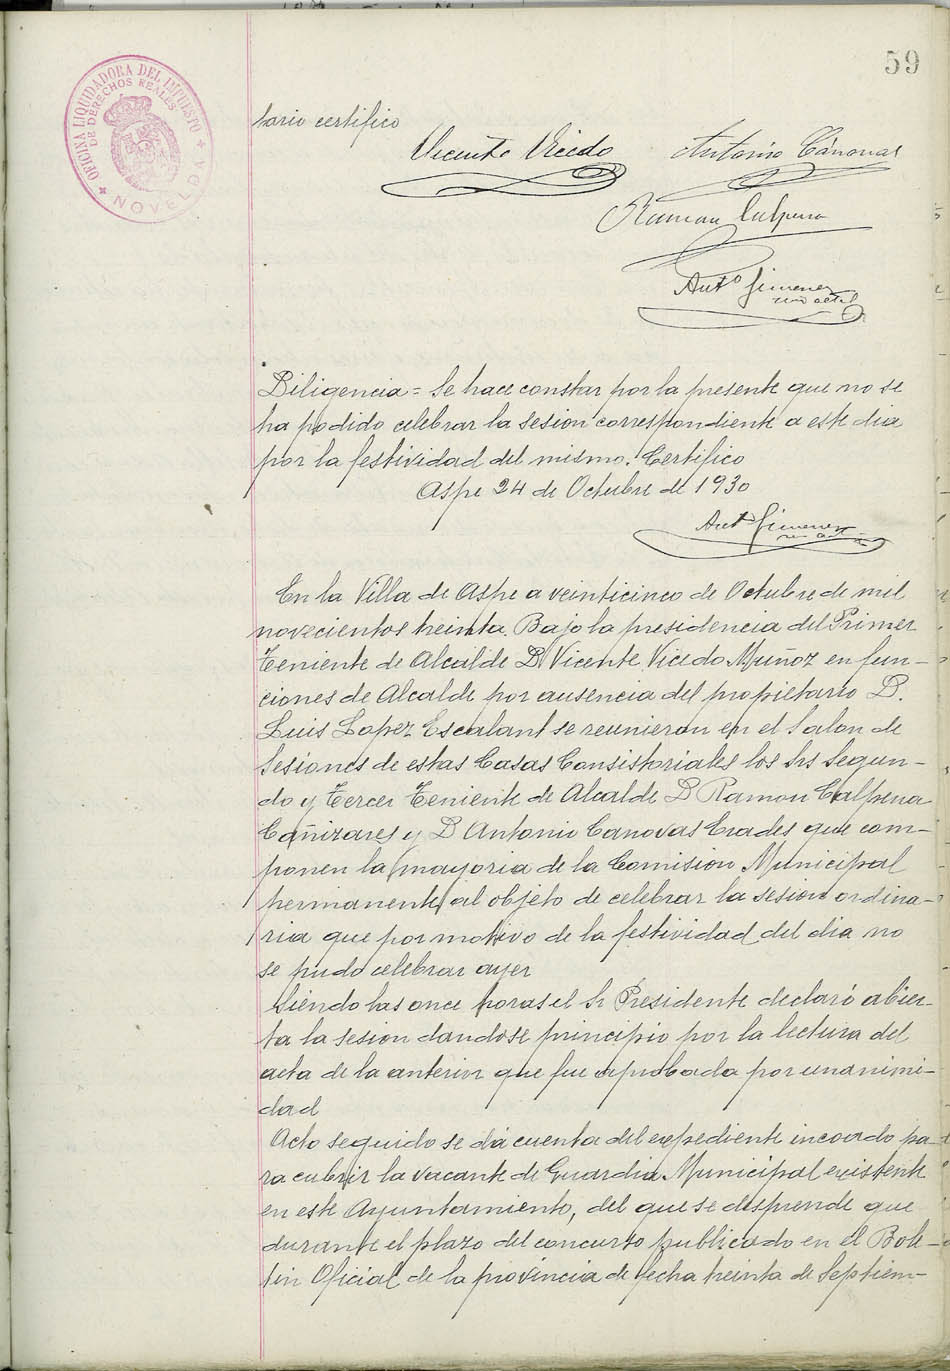 59
OFICINA LIQUIDADORA DEL IMPUESTO
DE DERECHOS REALES
NOVELDA
tario certifico
Vicente Vicedo Antonio Cánovas
Ramon Calpena
Antº Gimenez
Diligencia = Se hace constar por la presente que no se
ha podido celebrar la sesion correspondiente a este dia
por la festividad del mismo. Certifico
Aspe 24 de Octubre de 1930
Antº Gimenez
En la Villa de Aspe a veinticinco de Octubre de mil
novecientos treinta. Bajo la presidencia del Primer
Teniente de Alcalde D. Vicente Vicedo Muñoz en fun-
ciones de Alcalde por ausencia del propietario D.
Luis Lopez Escalant se reunieron en el Salon de
Sesiones de estas Casas Consistoriales los Srs Segun-
do y Tercer Teniente de Alcalde D Ramon Calpena
Cañizares y D Antonio Canovas Erades que com-
ponen la mayoria de la Comision Municipal
permanente al objeto de celebrar la sesion ordina-
ria que por motivo de la festividad del dia no
se pudo celebrar ayer
Siendo las once horas el Sr Presidente declaró abier-
ta la sesion dandose principio por la lectura del
acta de la anterior que fue aprobada por unanimi-
dad
Acto seguido se dá cuenta del expediente incoado pa-
ra cubrir la vacante de Guardia Municipal existente
en este Ayuntamiento, del que se desprende que
durante el plazo del concurso publicado en el Bole-
tin Oficial de la provincia de fecha treinta de Septiem-